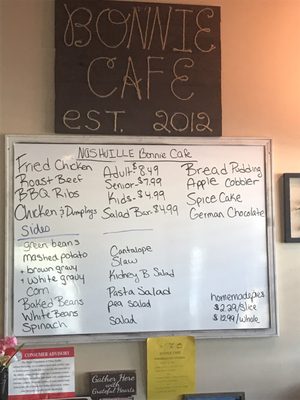 BONNIE
CAFE
EST. 2012
NASHVILLE Bonnie Cafe
Fried Chicken
Roast Beef
BBQ Ribs
Chicken & Dumplings
Sides
green beans
mashed potato
+ brown gravy
+ white gravy
Corn
Baked Beans
White Beans
Spinach
Adult $8.49
Senior-$7.99
Kids-$4.99
Salad Bar-$4.99
Cantalope
Slaw
Kidney B Salad
Pasta Salad
pea Salad
Salad
Bread Pudding
Apple Cobbler
Spice Cake
German Chocolate
homemade pies
$2.29/Slice
$12.99/whole
CONSUMER ADVISORY
Gather Here
with
Grateful Hearts